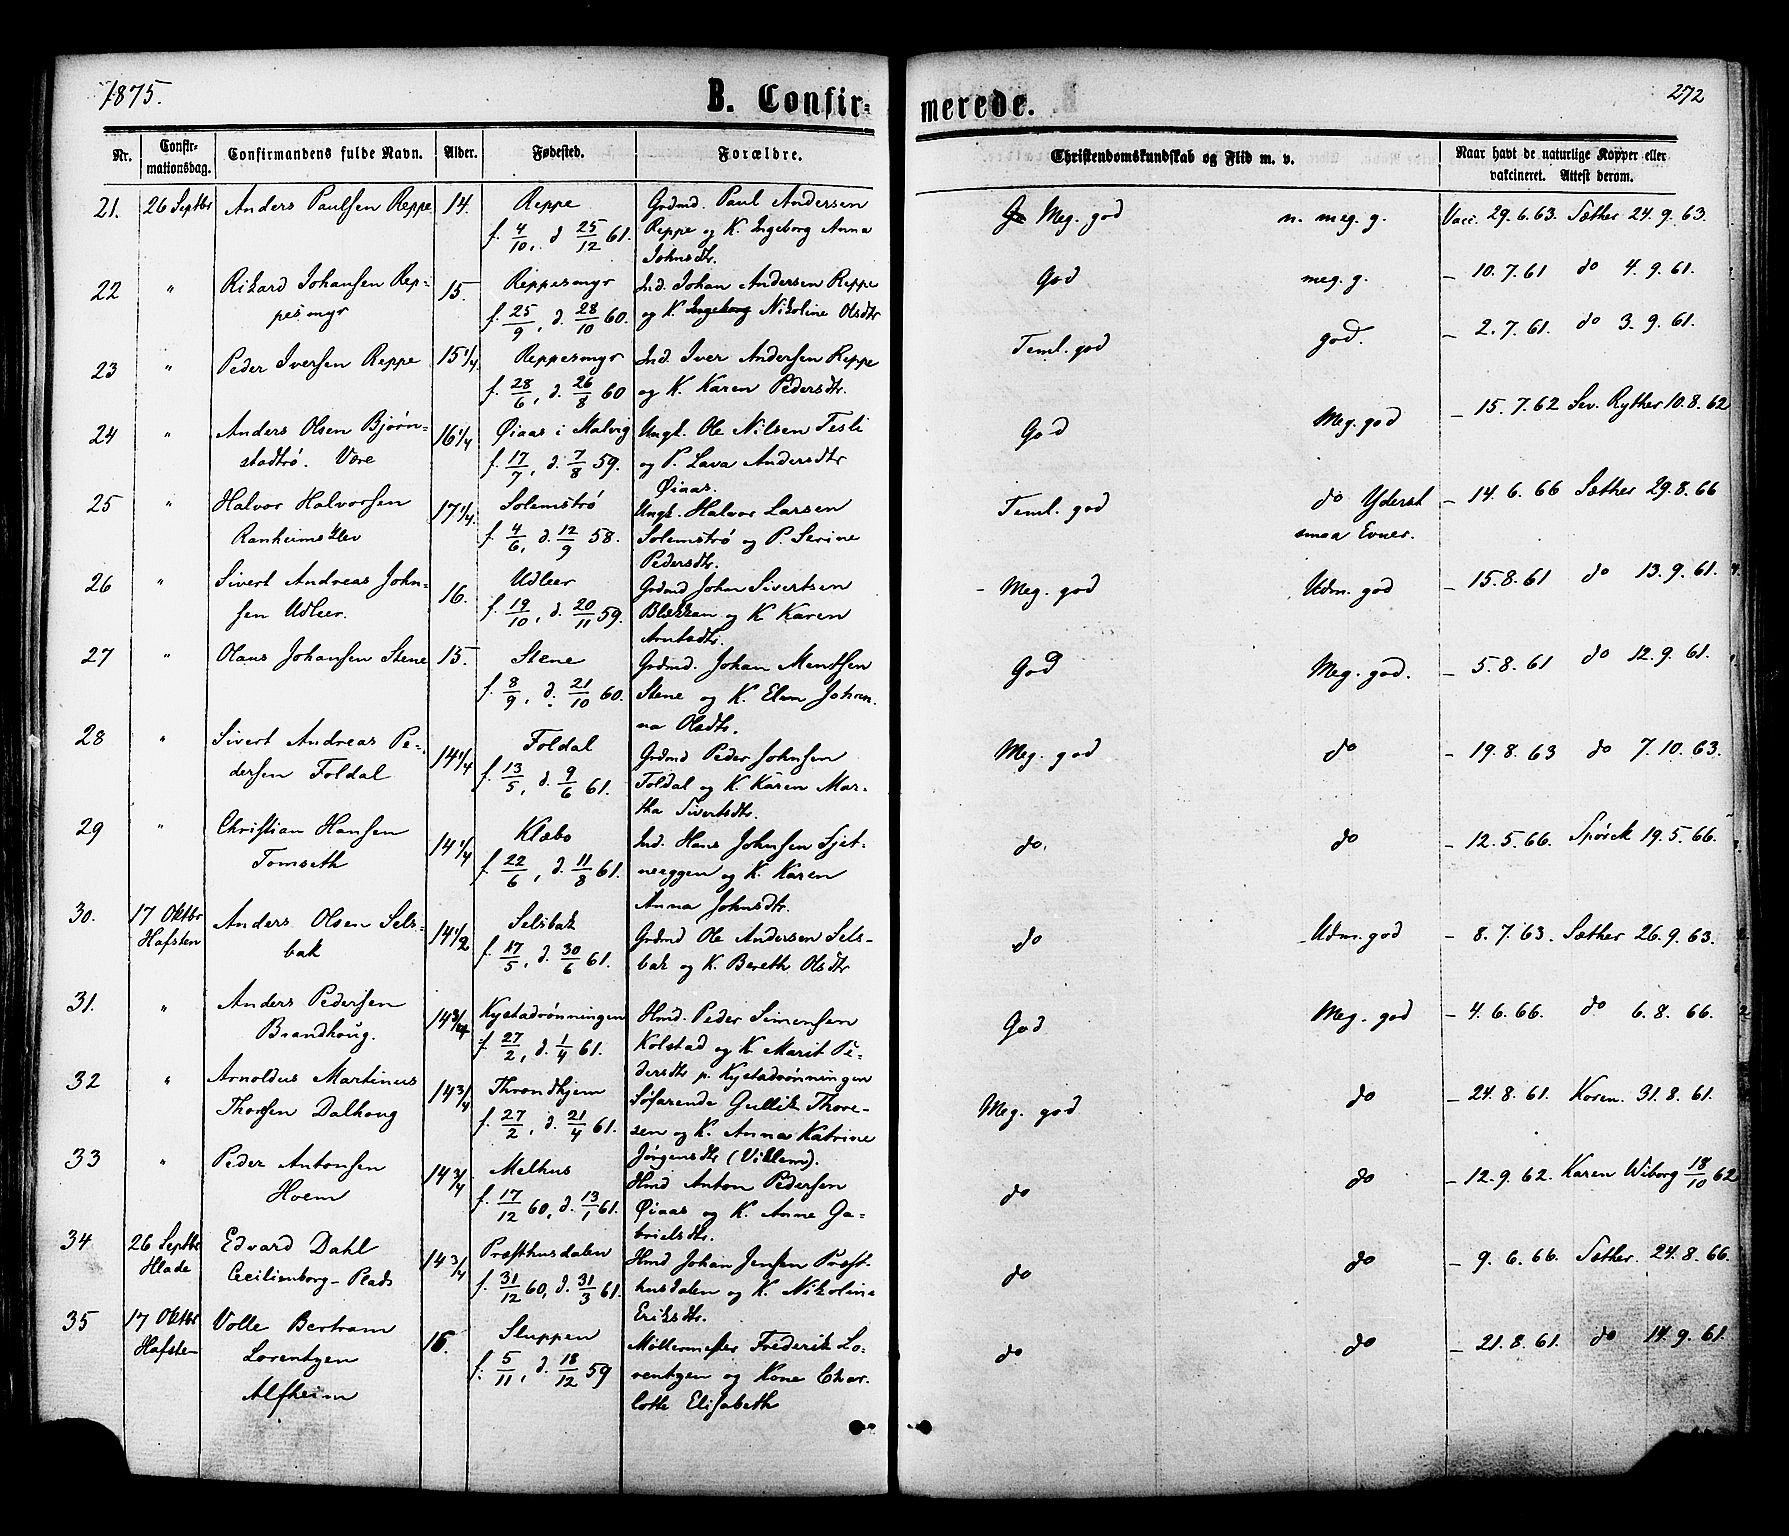 1875.
B. Confir-
merede.
272
Nr.
Confir-
mationsdag.
Confirmandens fulde Navn.
Alder.
Fødested.
Forældre.
Christendomskundskab og Flid m. v.
Naar havt de naturlige Kopper eller
vakcineret. Attest derom.
21. 26 Septbr Anders Paulsen Reppe 14. Reppe Grdmd. Paul Andersen Meg. god n. meg. g. Vacc. 29.6.63. Sæther 24.9.63.
f. 4/10, d 25/12 61. Reppe og K. Ingeborg Anna
Johnsdtr.
22 " Rikard Johansen Rep- 15. Reppesmyr Ind. Johan Andersen Reppe God meg. g. - 10.7.61 do 4.9.61.
pesmyr f. 25/9, d. 28/10 60. og K. Ingeborg Nikoline Olsdtr
23 " Peder Iversen Reppe 15 1/4. Reppesmyr Ind. Iver Andersen Reppe Teml. god god. - 2.7.61. do 3.9.61.
f. 28/6, d. 26/8 60 og K. Karen Pedersdtr.
24 " Anders Olsen Bjørn- 16 1/4 Øiaas i Malvig Ungk. Ole Nilsen Tesli God Meg. god - 15.7.62 Sev. Ryther 10.8.62
stadtrø. Være f. 17/7, d. 7/8 59. og P. Lava Andersdtr
Øiaas.
25 " Halvor Halvorsen 17 1/4. Solemstrø Ungk. Halvor Larsen Teml. god do Yderst - 14.6.66 Sæther 29.8.66
Ranheimsklev f. 4/6, d. 12/9 58. Solemstrø og P. Serine smaa Evner.
Pedersdtr.
26 " Sivert Andreas John- 16. Udleer Grdmd John Sivertsen - Meg. god Udm. god - 15.8.61 do 13.9.61.
sen Udleer. f. 19/10, d. 20/11 59. Blekkan og K Karen
Arntsdtr.
27 " Olaus Johansen Stene 15. Stene Grdmd. Johan Mentsen God Meg. god. - 5.8.61 do 12.9.61.
f. 8/9, d. 21/10 60. Stene og K. Elen Johan-
na Olsdtr.
28 " Sivert Andreas Pe- 14 1/4 Foldal Grdmd Peder Johnsen Meg. god do - 19.8.63 do 7.10.63.
dersen Foldal f. 13/5, d. 9/6 61. Foldal og K. Karen Mar-
tha Sivertsdtr.
29 " Christian Hansen 14 1/4 Klæbo Ind. Hans Johnsen Sjet- do. do - 12.5.66. Spörck 19.5.66.
Tomseth f. 22/6, d. 11/8 61. neeggen og K. Karen
Anna Johnsdtr.
30. 17 Oktbr Anders Olsen Sels- 14 1/2 Selsbak Grdmd Ole Andersen Sels- do Udm. god - 8.7.63. Sæther 26.9.63.
Hafsten bak f. 17/5, d. 30/6 61. bak og K. Bereth Olsdtr
31. " Anders Pedersen 14 3/4 Kystadrønningen Hmd. Peder Simensen God Meg. god - 4.6.66. do 6.8.66.
Brandhoug. f. 27/2, d. 1/4 61. Kolstad og K. Marit Pe-
dersdtr p. Kystadrønningen
32 " Arnoldus Martinus 14 3/4 Throndhjem Søfarende Gullik Thore- Meg. god do - 24.8.61. Koren. 31.8.61.
Thorsen Dalhoug f. 27/2, d. 21/4 61. sen og K. Anna Katrine
Jørgensdtr (Villem).
33 " Peder Antonsen 14 3/4 Melhus Hmd Anton Pedersen do do - 12.9.62. Karen Wiborg 18/10 62
Hoem f. 17/12 60, d. 13/1 61. Øiaas og K. Anne Ga-
brielsdtr.
34 26 Septbr Edvard Dahl 14 3/4 Præsthusdalen Hmd Johan Jensen Præst- do do - 9.6.66. Sæther. 24.8.66.
Hlade Cecilienborg-Plads f. 31/12 60, d. 31/3 61. husdalen og K. Nikoline
Eriksdtr.
35 17 Oktbr Volle Bertram 16. Sluppen Møllermester Frederik Lo- do do - 21.8.61. do 14.9.61.
Hafste- Lorentzen f. 5/11, d. 18/12 59 rentzen og Kone Char-
Alfheim lotte Elisabeth